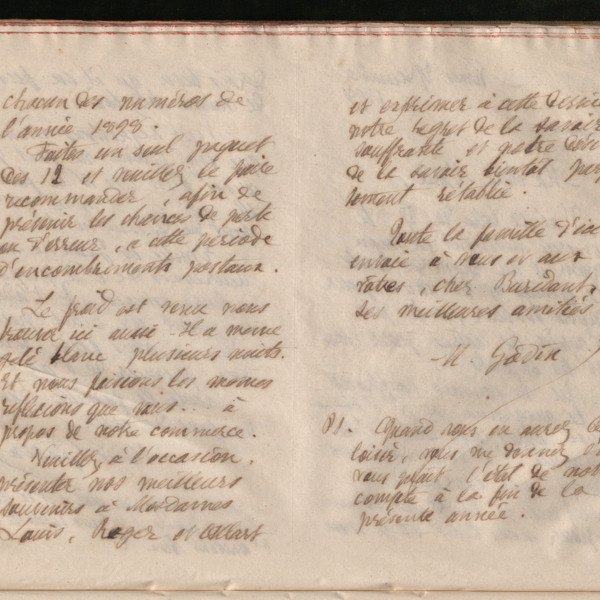 chacun des numéros de
l'année 1898.
Faites un seul paquet
des 12 et veuillez le faire
recommander, afin de
prévenir les chances de perte
ou d'erreur, à cette période
d'encombrements postaux.
Le froid est venu nous
trouver ici aussi. Il a même
gelé blanc plusieurs nuits.
Et nous faisions les mêmes
réflexions que vous... à
propos de notre commerce.
Veuillez, à l'occasion,
présenter nos meilleurs
souvenirs à Mesdames
Louis, Roger et
et exprimer à cette
notre regret de la savoir
souffrante et notre
de la savoir bientôt
rétablie.
Toute la famille d'
envoie à vous et aux
vôtres, cher Buridant,
ses meilleures amitiés
M. Godin
PS. Quand vous en aurez le
loisir, vous me
vous plaît, l'état de
compte à la fin de la
présente année.